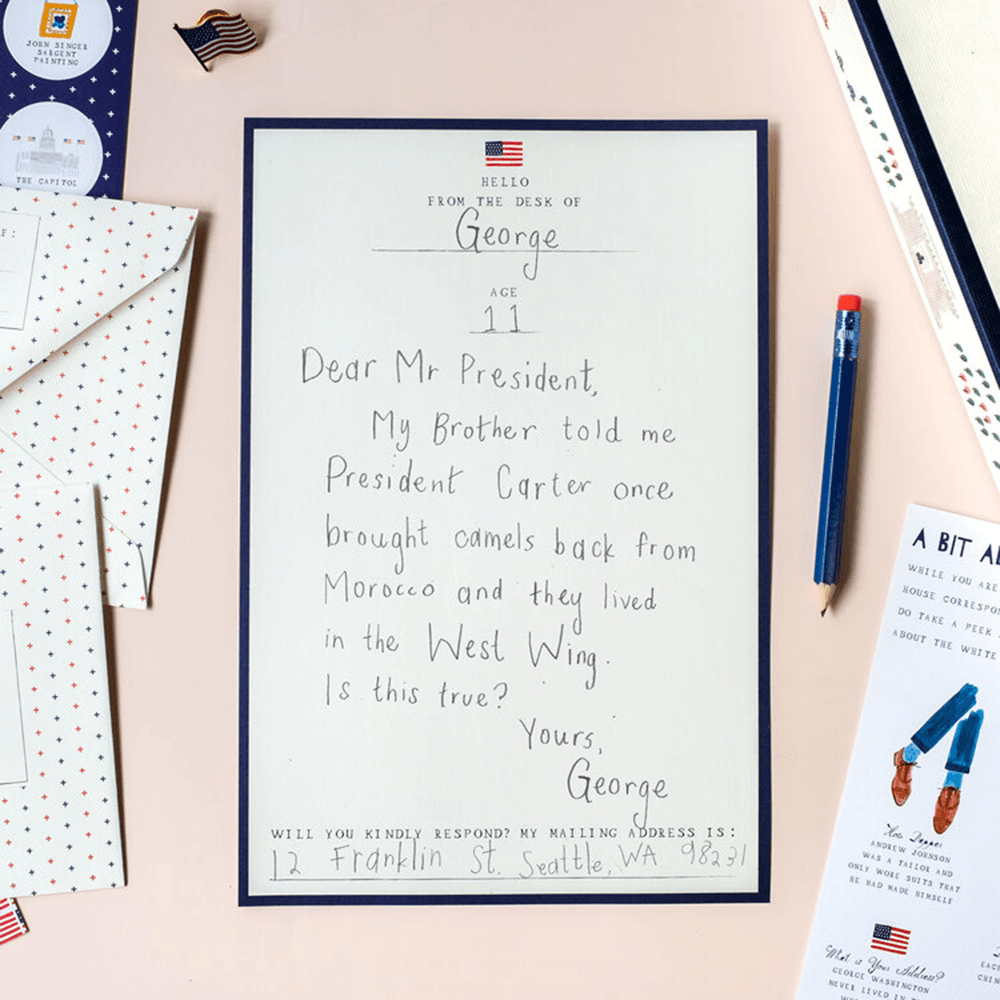 JOHN SINGER
SARGENT
PAINTING
THE CAPITOL
F:
HELLO
FROM THE DESK OF
George
AGE
11
Dear Mr President,
My Brother told me
President Carter once
brought camels back from
Morocco and they lived
in the West Wing.
Is this true?
Yours,
George
WILL YOU KINDLY RESPOND? MY MAILING ADDRESS IS:
12 Franklin St. Seattle, WA 98231
A BIT A
WHILE YOU ARE
HOUSE CORRESPO
DO TAKE A PEEK
ABOUT THE WHITE
How Dapper
ANDREW JOHNSON
WAS A TAILOR AND
ONLY WORE SUITS THAT
HE HAD MADE HIMSELF
What is Your Address?
GEORGE WASHINGTON
NEVER LIVED IN
EAC
CHIN